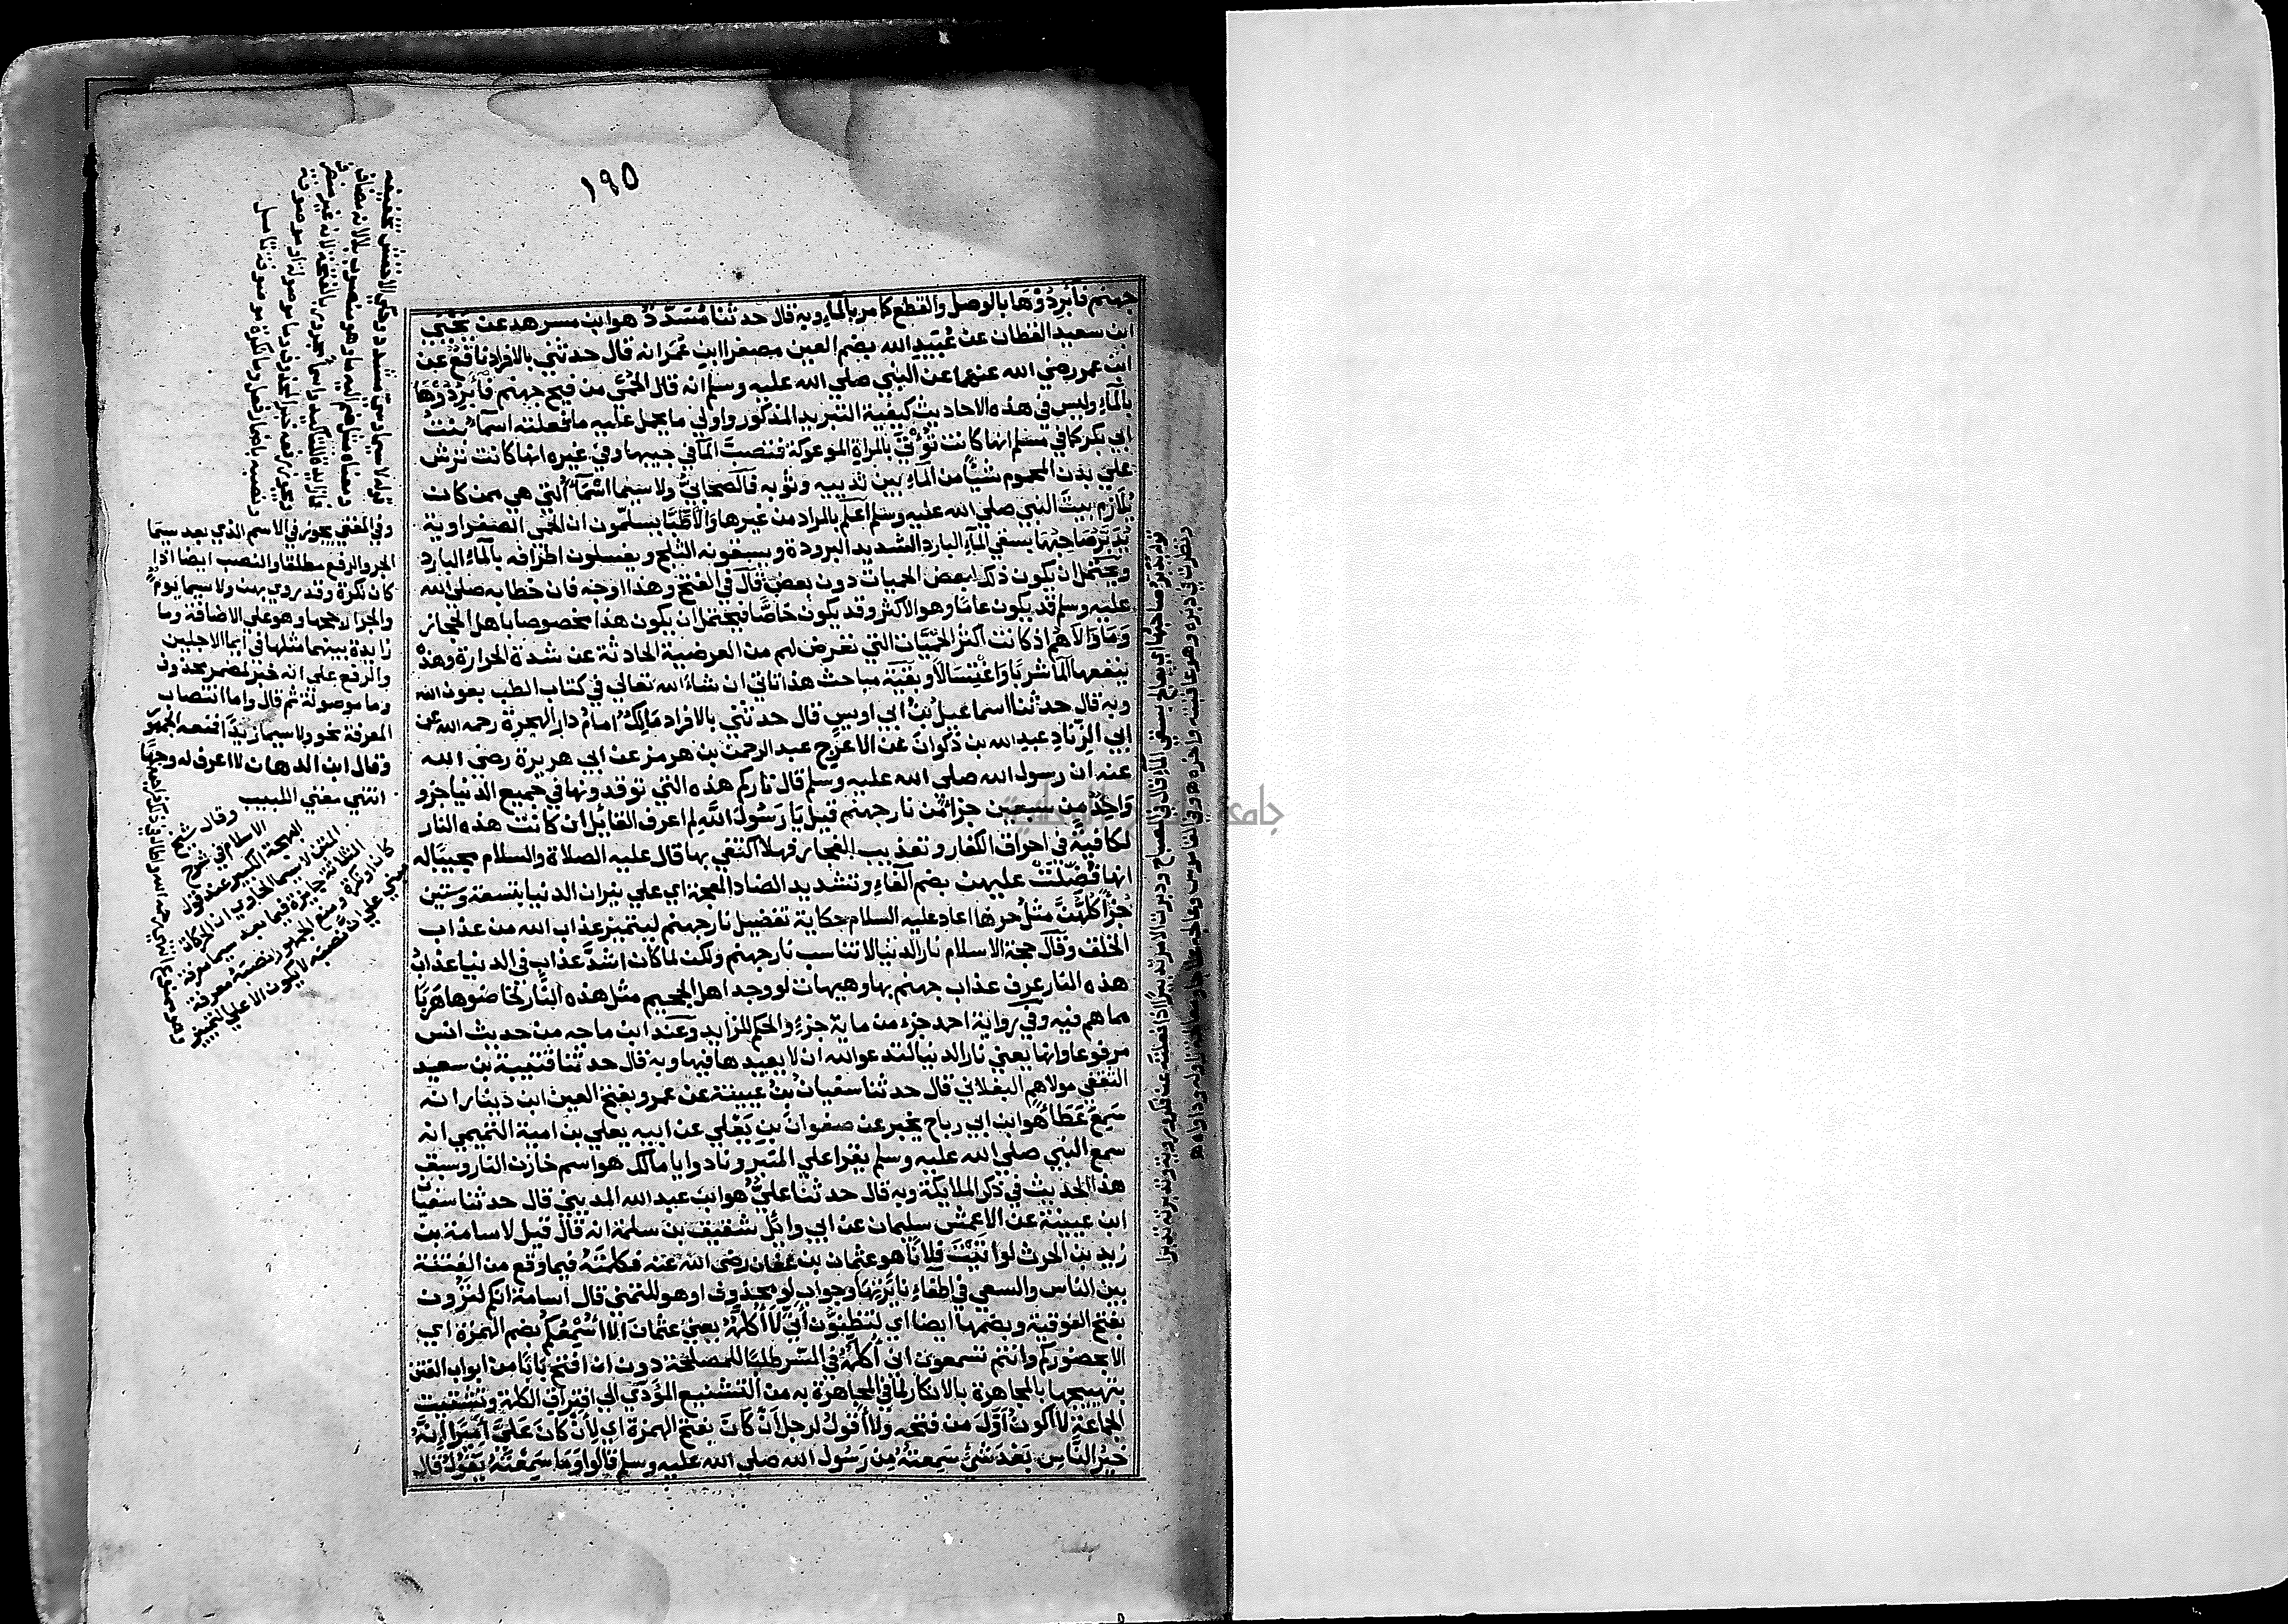 ١٩٥
جهنم فَأبْرِدُوْهَا بالوصل والقطع كما مر بالمآء وبه قال حدثنا مُسَدَّدٌ هو ابن مسرهد عن يَحْيَى
ابن سعيد القطان عن عُبَيْدِ الله بضم العين مصغرا ابن عُمَرَ انه قال حدثني بالافراد نافع عن
ابن عمر رضي الله عنهما عن النبي صلي الله عليه وسلم انه قال الحُمَّى من فيح جهنم فأَبْرِدُوْهَا
بالمآءِ وليس في هذه الاحاديث كيفية التبريد المذكور واولي ما يحمل عليه ما فعلته اسمآءُ بنتُ
ابي بكر كما في مسلم انها كانت تُؤْتَى بالمراة الموعوكة فتصبَّ المآ في جيبها وفي غيره انها كانت ترش
علي بدن المحموم شيًا من المآء بين ثدييه وثوبه فالصحابيُّ ولا سيما اسْمَآءُ التي هي ممن كانت
يُلازم بيتَ النبي صلي الله عليه وسلم اعلم بالمراد من غيرها والأطبَّا يسلّمون ان الحمى الصفراوية
يُدَبَّرُ صَاحِبُهَا بسقي المآء البارد الشديد البرودة ويسقونه الثلج ويغسلون اطرافه بالمآء البارد
ويحتمل ان يكون ذلك لبعض الحميات دون بعض قال في الفتح وهذا اوجه فان خطابه صلى الله
عليه وسلم قد يكون عامًا وهو الاكثر وقد يكون خاصًّا فيحتمل ان يكون هذا مخصوصا باهل الحجاز
وَمَا وَالَاهُمْ اذ كانت اكثر الحُمِيَّات التي تعرض لهم من العرضية الحادثة عن شدة الحرارة وهذه
ينفعها المآ شربًا وَاغْتِسَالًا وبقية مباحث هذا تاتي ان شاء الله تعالي في كتاب الطب بعون الله
وبه قال حدثنا اسماعيل بْنُ ابي اويس قال حدثني بالافراد مَالِكٌ امامُ دار الهجرة رحمه الله عن
ابي الزِّنَادِ عبد الله بن ذكوانَ عن الاعرج عبد الرحمن بن هرمز عن ابي هريرة رضي الله
عنه ان رسول الله صلي الله عليه وسلم قال ناركم هذه التي توقدونها في جميع الدنيا جزو
وَاحِدٌ من سبعين جزأً من نار جهنم قيل يَا رَسُوْلَ اللَّهِ لم اعرف القايل ان كانت هذه النار
لكافيةً في احراق الكفار وتعذيب الفجار فهلا اكتفي بها قال عليه الصلاة والسلام مجيبًا له
انها فُضِّلَتْ عليهن بضم الفآءِ وتشديد الضاد المعجمة اي علي نيران الدنيا بتسعة وستين
جُزْأً كُلُّهُنَّ مثلُ حرها اعاد عليه السلام حكاية تفضيل نار جهنم ليتميز عذاب الله من عذاب
الخلق وقال حجة الاسلام نار الدنيا لا تناسب نار جهنم ولكن لما كان اشدَّ عذاب في الدنيا عذابُ
هذه النار عرف عذاب جهنم بها وهيهات لو وجد اهل الجحيم مثل هذه النَّار لخاضوها هَرَبًا
مما هم فيه وفي رواية احمد جزء من ماية جزءٍ والحكم للزايد وعند ابن ماجه من حديث انس
مرفوعا وانها يعني نار الدنيا لتدعو الله ان لا يعيدها فيها وبه قال حدثنا قتيبة بن سعيد
الثقفي مولاهم البغلاني قال حدثنا سفيانُ بْنُ عيينة عن عمرو بفتح العين ابن دينار انه
سَمِعَ عَطَآءً هو ابن ابي رباح يخبر عن صفوانَ بنِ يَعْلَي عن ابيه يعلي بن امية التميمي انه
سمع النبي صلي الله عليه وسلم يقرا علي المنبر ونادوا يا مالك هو اسم خازن النار وسبق
هذا الحديث في ذكر الملايكة وبه قال حدثنا عليٌّ هو ابن عبد الله المديني قال حدثنا سفيان
ابن عيينة عن الاعمش سليمان عن ابي وايل شقيق بن سلمة انه قال قيل لاسامة بن
زيد بن الحرث لو اتَيْتَ فلانًا هو عثمان بن عفان رضي الله عنه فكلمتَهُ فيما وقع من الفتنة
بين الناس والسعي في اطفآءِ نايرتها وجواب لو محذوف او هو للتمني قال أسامة انكم لتَُرون
بفتح الفوقية وبضمها ايضا اي لتظنون أَنِّي لَا أُكَلِّمُهُ يعني عثمان الا أُسْمِعُكُم بضم الهمزة اي
الا بحضوركم وانتم تسمعون اني أُكَلِّمُهُ في السّر طلبًا للمصلحة دون ان افتح بابًا من ابواب الفتن
بتهييجها بالمجاهرة بالانكار لما في المجاهرة به من التشنيع المؤدّي الي افتراق الكلمة وتشتيت
الجماعة لا اكونُ أَوَّلَ من فتحه ولا اَقولُ لرجل أَنْ كَانَ بفتح الهمزة اي لِأَنْ كَانَ عَلَيَّ اَمِيْرًا اِنَّهُ
خيرُ النَّاسِ بَعْدَ شئٍ سَمِعْتُهُ مِنْ رَسُوْلِ الله صلي الله عليه وسلم قالوا وَمَا سَمِعْتَهُ يَقُوْلُ قال
وفي المغني يجوز في الاسم الذي بعد سيما
الجر والرفع مطلقا والنصب ايضا اذا
كان نكرة وقد روي بهن ولا سيما يوم
والجر ارجحها وهو علي الاضافة وما
زايدة بينهما مثلها في ايما الاجلين
والرفع علي انه خبر لمضمر محذوف
وما موصولة ثم قال واما انتصاب
المعرفة نحو ولا سيما زيدًا فمنعه الجمهور
وقال ابن الدهان لا اعرف له وجها
انتهي مغني اللبيب